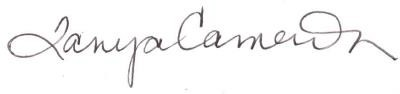 Tanya Cameron